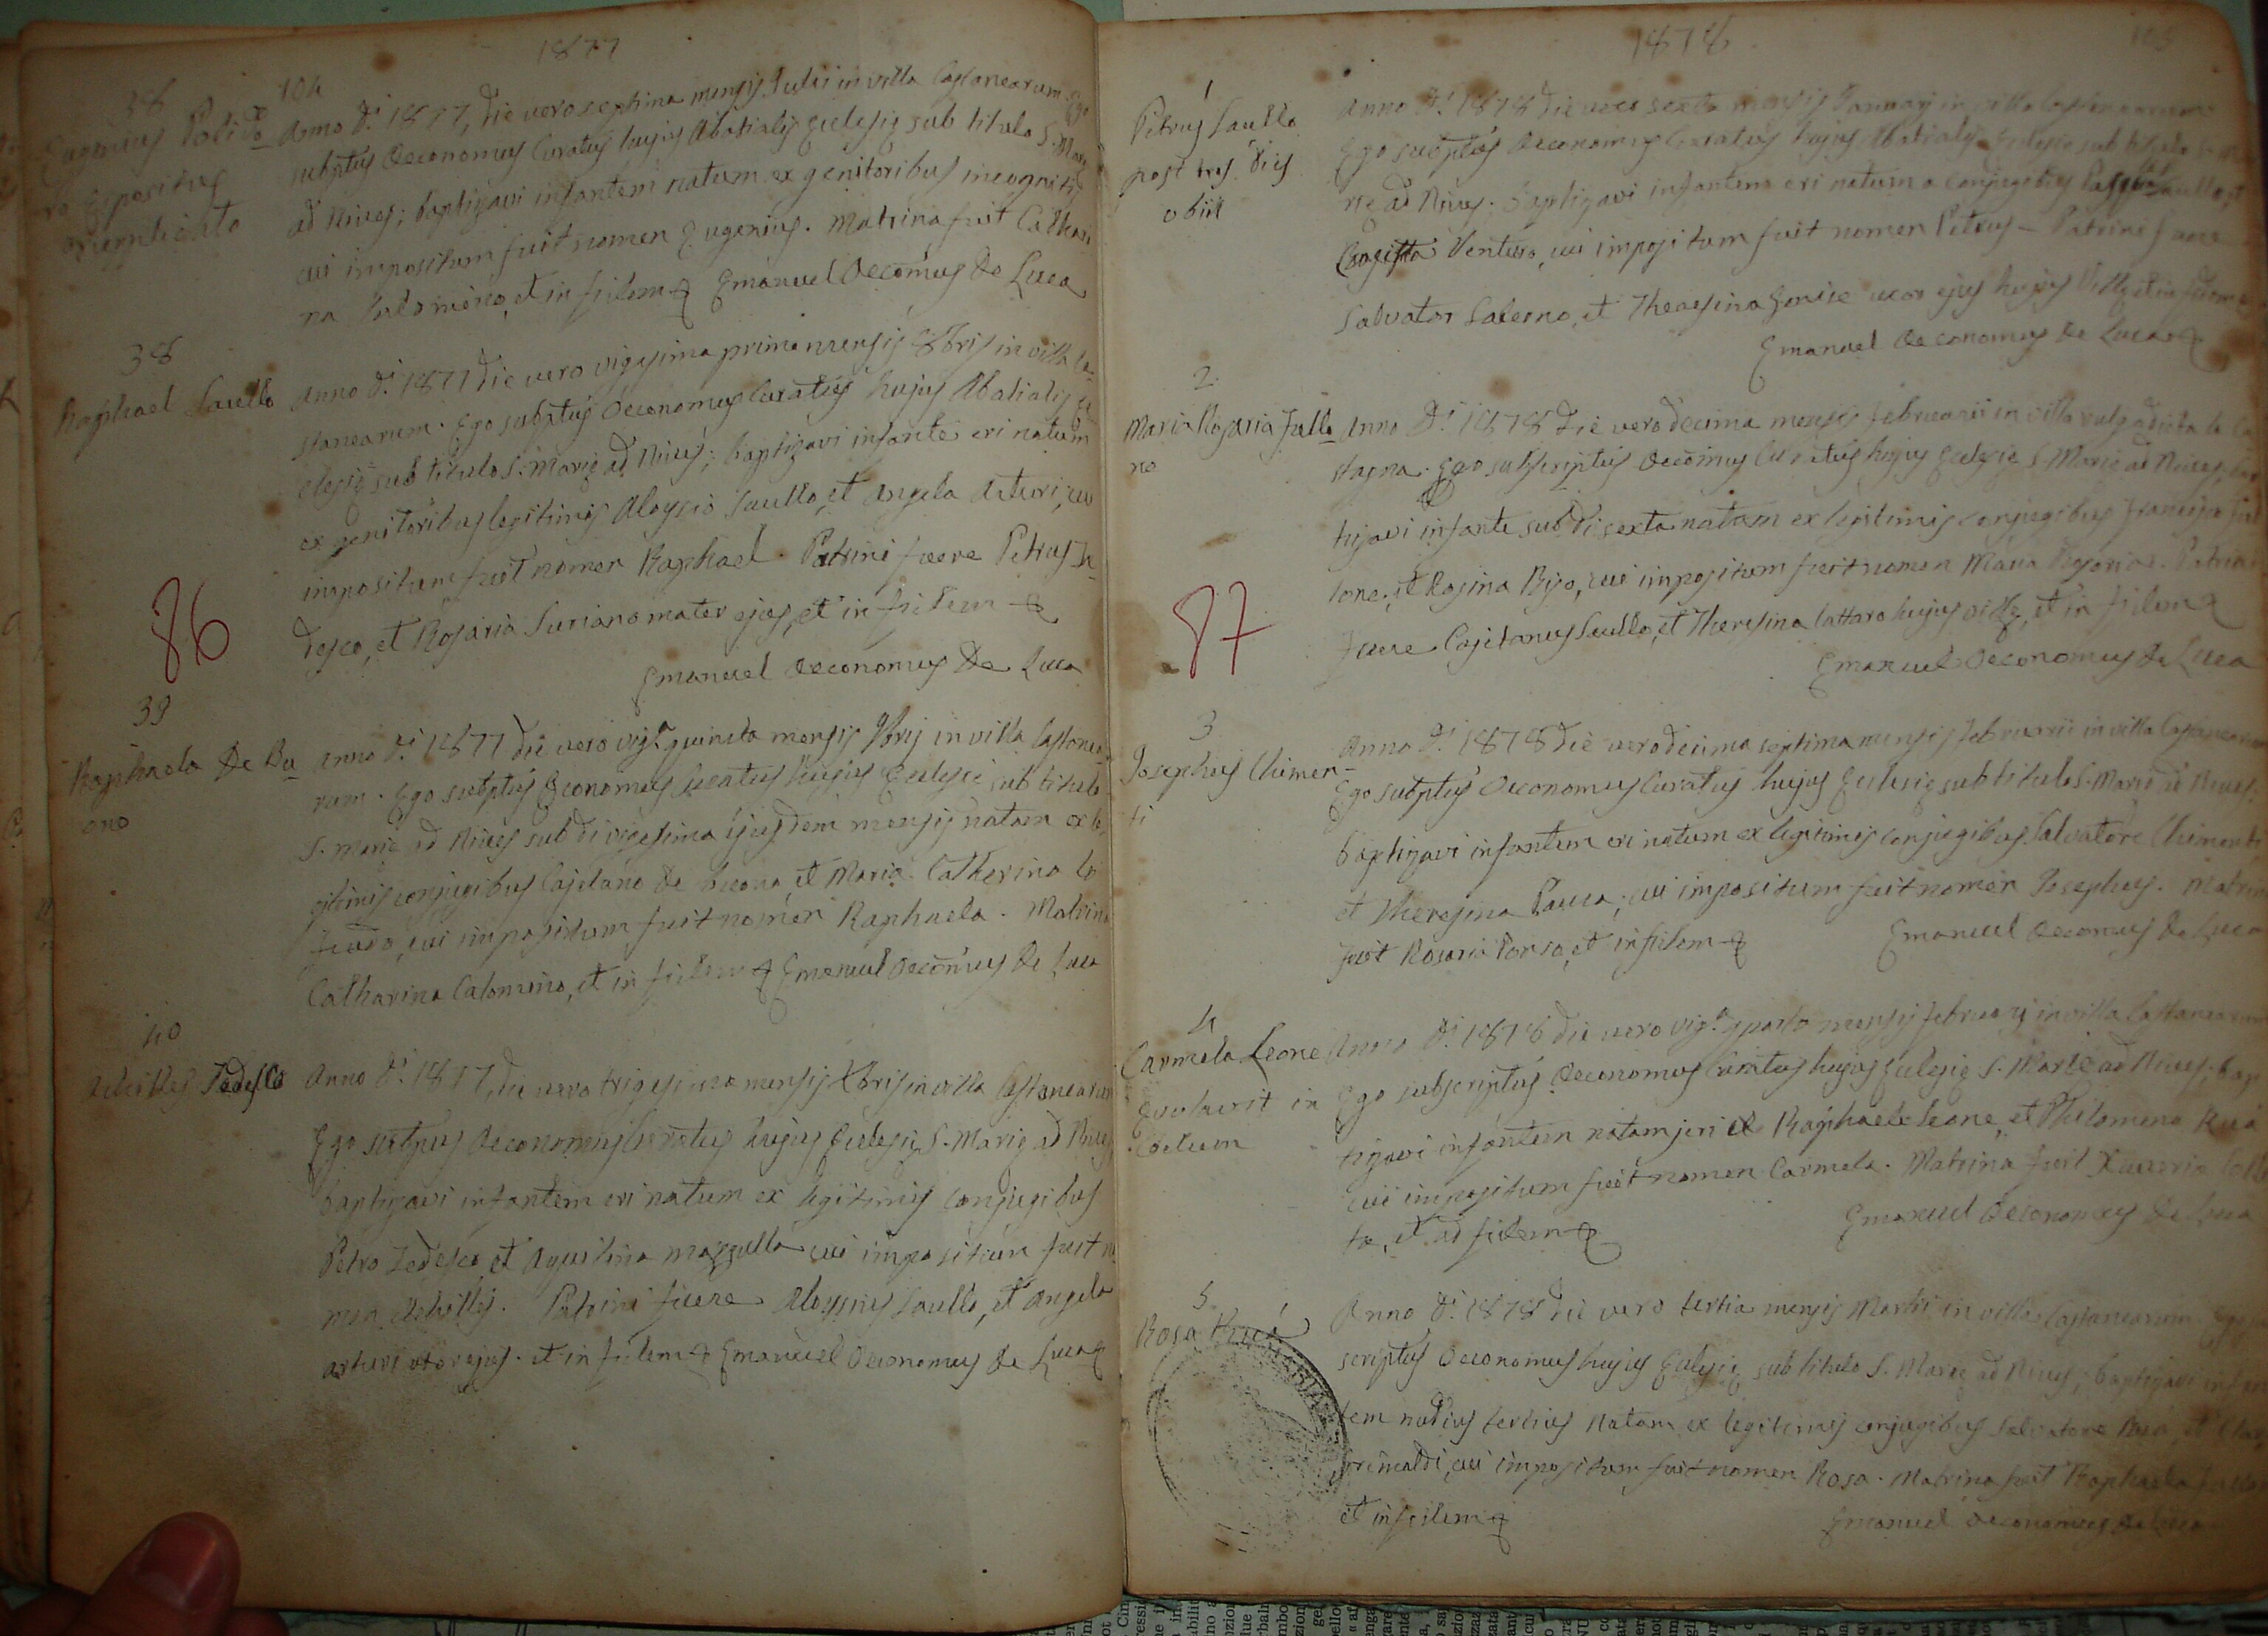 1877
38 104
Eugenius Polido
ro Expositus
Anno D.i 1877, die vero septima mensis Julii in villa Castanearum. Ego
subptus Oeconomus Curatus hujus Abatialis Eclesie sub titulo S. Marie
ad Nives; baptizavi infantem natum ex genitoribus incognitis
cui impositum fuit nomen Eugenius. Matrina fuit Cathari
na Calomeno, et in fidem Emanuel Oecomus De Luca
38
Raphael Saullo
Anno D.i 1877 die vero vigesima prima mensis 8bris in villa Ca-
stanearum. Ego subptus Oeconomus Curatus hujus Abatialis Ec
clesie sub titulo S. Marie ad Nives; baptizavi infante eri natum
ex genitoribus legitimis Aloysio Saullo, et Angela Arturi, cui
impositum fuit nomen Raphael. Patrini fuere Petrus Te-
desco, et Rosaria Suriano mater ejus, et in fidem
Emanuel Oeconomus De Luca
86
39
Raphaela De Bu
ono
Anno D.i 1877 die vero vig.a quinta mensis 9bris in villa Castanea
rum. Ego subptus Economus Curatus hujus Eclesie sub titulo
S. Marie ad Nives sub di vigesima ejusdem mensis natam ex le
gitimis conjugibus Cajetano De Buono et Maria Catherina Lo
cui impositum fuit nomen Raphaela. Matrina
Catharina Calomeno, et in fidem Emanuel Oecomus De Luca
40
Achilles Tedesco
Anno D.i 1877, die vero trigesima mensis Xbris in villa Castanearum
Ego subtpus Oeconomus Curatus hujus Eclesie S. Marie ad Nives
baptizavi infantem eri natum ex legitimis conjugibus
Petro Tedesco et Aquilina Mazzulla cui impositum fuit no
men Achilles. Patrini fuere Aloysius Saullo, et Angela
Arturi uxor ejus. et in fidem Emanuel Oeconomus De Luca
1878
105
1
Petrus Saullo
post tres dies
obiit
Anno D.i 1878 die vero sexta mensis Januarj in villa Castanearum
Ego subptus Oeconomus Curatus hujus Abatialis Eclesie sub titulo S. Ma
rie ad Nives; baptizavi infantem eri natum a conjugibus Saullo, et
Venturo, cui impositum fuit nomen Petrus - Patrini fuere
Salvator Salerno, et Theresina uxor ejus hujus Ville, et in fidem
Emanuel Oeconomus De Luca
2
Maria Rosaria Tallo
ne
Anno D.i 1878 die vero decima mensis Februarii in villa vulgo dicta la Ca
stagna. Ego subscriptus Oecomus Curatus hujus Eclesie S. Marie ad Nives, bap
tizavi infante sub di sexta natam ex legitimis conjugibus Francisco Tal
lone, et Rosina Rizo, cui impositum fuit nomen Maria Rosaria. Patrini
fuere Cajetanus Saullo, et Theresina Cattaro hujus ville, et in fidem
Emanuel Oeconomus De Luca
87
3
Josephus Chimen-
ti
Anno D.i 1878 die vero decima septima mensis Februarii in villa Castanearum
Ego subptus Oeconomus Curatus hujus Eclesie sub titulo S. Marie ad Nives.
baptizavi infantem eri natum ex legitimis conjugibus Salvatore Chimenti
et Theresina Pauca, cui impositum fuit nomen Josephus. Matrina
fuit Rosaria Tonso, et in fidem Emanuel Oeconus De Luca
4
Carmela Leone
Evolavit in
Coelum
Anno D.i 1878 die vero vig.a quarta mensis Februarj in villa Castanearum
Ego subscriptus Oeconomus Curatus hujus Eclesie S. Marie ad Nives, bap
tizavi infantem natam jeri ex Raphaele Leone, et Philomena Rua
cui impositum fuit nomen Carmela. Matrina fuit Xaveria
ta, et ad fidem Emanuel Oeconomus De Luca
5
Rosa Rua
Anno D.i 1878 die vero tertia mensis Martii in villa Castanearum. Ego sub
scriptus Oeconomus hujus Eclesie sub titulo S. Marie ad Nives; baptizavi infan
tem nudius tertius natam ex legitimis conjugibus Salvatore Rua, et Clara
Grimaldi, cui impositum fuit nomen Rosa. Matrina fuit Raphaela
et in fidem
Emanuel Oeconomus De Luca